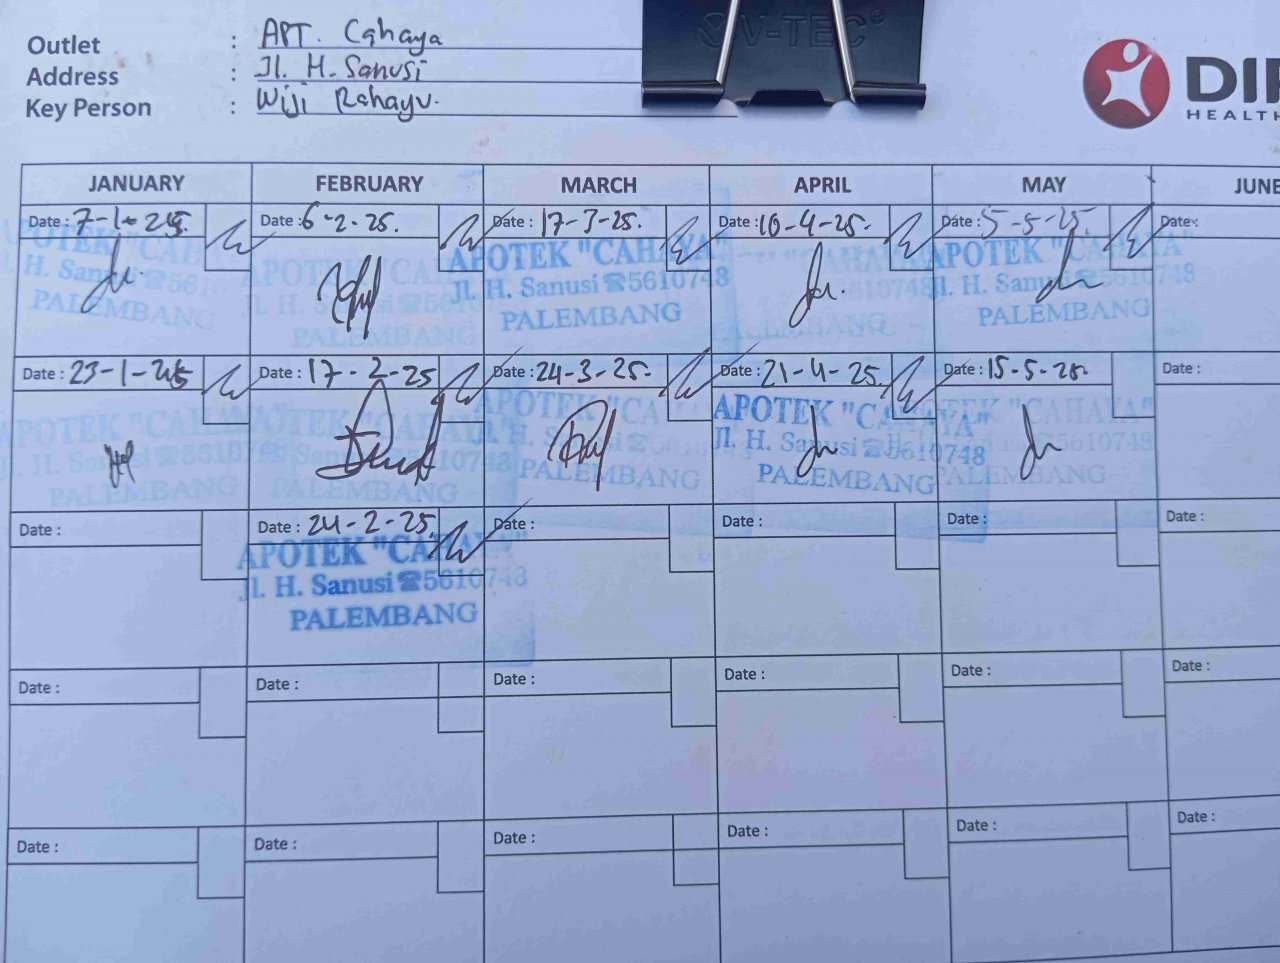 Outlet : APT. Cahaya
Address : Jl. H. Sanusi
Key Person : Wiji Rahayu.
V-TEC®
DIP
HEALTH
JANUARY FEBRUARY MARCH APRIL MAY JUNE
Date : 7-1-25. Date : 6-2-25. Date : 17-3-25. Date : 10-4-25. Date : 5-5-25. Date :
APOTEK "CAHAYA" APOTEK "CAHAYA" APOTEK "CAHAYA" "CAHAYA" APOTEK "CAHAYA"
Jl. H. Sanusi ☎561 Jl. H. Sanusi ☎5610748 Jl. H. Sanusi ☎5610748 ☎5610748 Jl. H. Sanusi ☎5610748
PALEMBANG PALEMBANG PALEMBANG PALEMBANG PALEMBANG
Date : 23-1-25 Date : 17-2-25 Date : 24-3-25. Date : 21-4-25. Date : 15-5-25. Date :
APOTEK "CAHAYA" APOTEK "CAHAYA" APOTEK "CAHAYA" APOTEK "CAHAYA" APOTEK "CAHAYA"
Jl. H. Sanusi Jl. H. Sanusi ☎5610748 Jl. H. Sanusi Jl. H. Sanusi ☎5610748
PALEMBANG PALEMBANG PALEMBANG PALEMBANG PALEMBANG
Date : Date : 24-2-25. Date : Date : Date : Date :
APOTEK "CAHAYA"
Jl. H. Sanusi ☎5610748
PALEMBANG
Date : Date : Date : Date : Date : Date :
Date : Date : Date : Date : Date : Date :